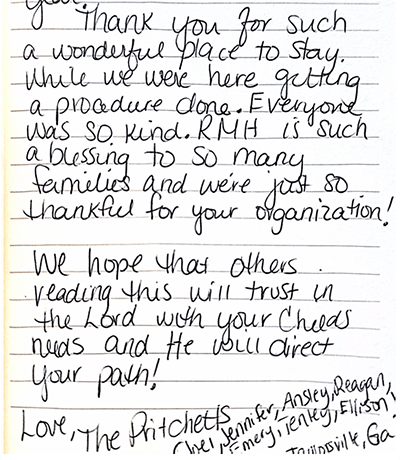 Thank you for such
a wonderful place to stay.
While we were here getting
a procedure done. Everyone
was so kind. RMH is such
a blessing to so many
families and we're just so
thankful for your organization!
We hope that others
reading this will trust in
the Lord with your Cheeds
needs and He will direct
your path!
Love, The Pritchetts
Jennifer, Ansley, Reagan,
Emery, Tenley, Ellison!
Ga